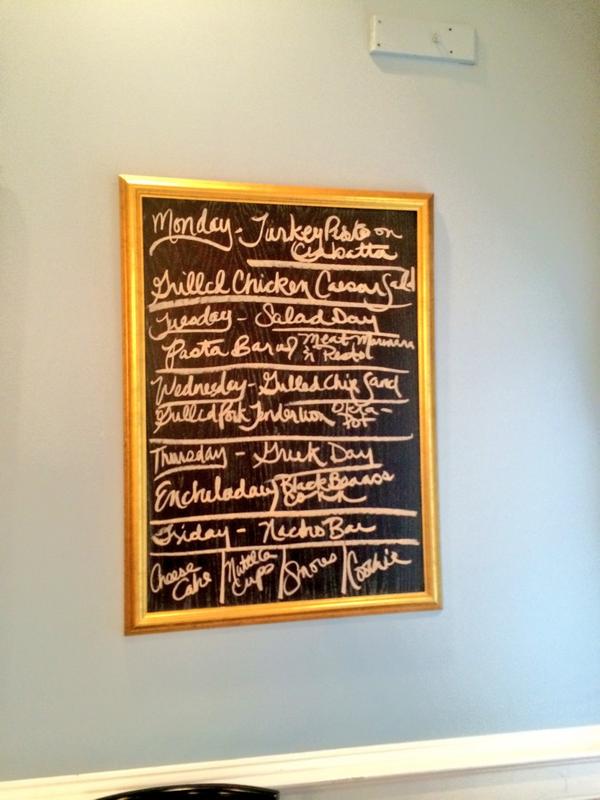 Monday - Turkey Pesto on
Ciabatta
Grilled Chicken Caesar Salad
Tuesday - Salad Day
Pasta Bar w/ Meat Marinara
n Pesto
Wednesday - Grilled Chix Sand
Grilled Pork Tenderloin
Pot
Thursday - Greek Day
Encheladas Black Beans
Corn
Friday - Nacho Bar
Cheese Cake Nutella Cups Smores Cookie